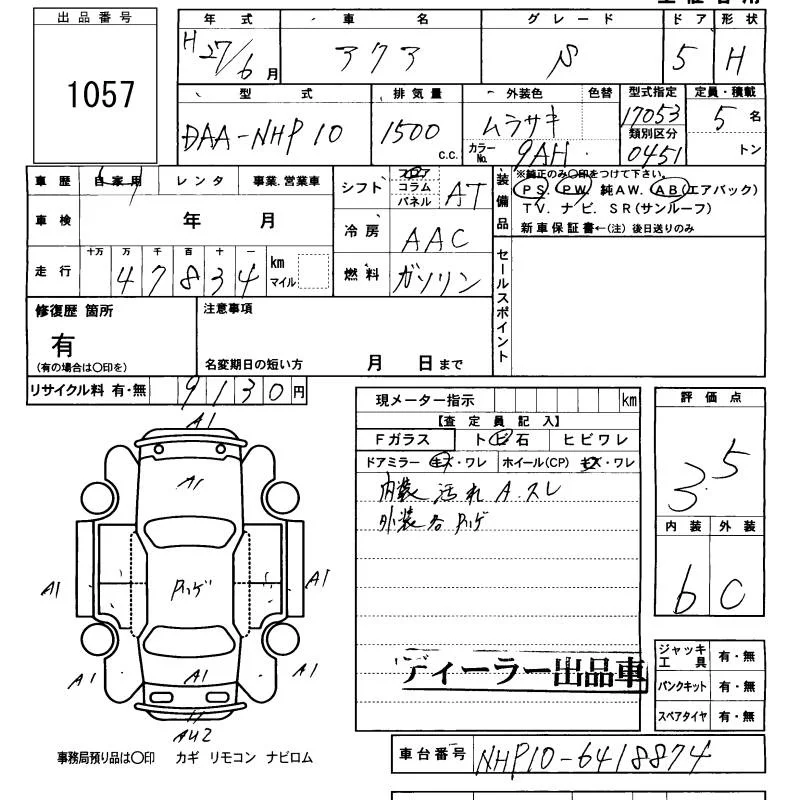 出品番号
1057
年式 車名 グレード ドア 形状
H27/6月 アクア S 5 H
型式 排気量 外装色 色替 型式指定 定員・積載
DAA-NHP10 1500 c.c. ムラサキ 17053 5名
カラーNo. 9AH 類別区分 0451 トン
車歴 自家用 レンタ 事業.営業車
シフト フロア コラム パネル AT
装備品
※純正のみ〇印をつけて下さい。
PS. PW. 純AW. AB(エアバック)
TV. ナビ. SR(サンルーフ)
新車保証書←(注)後日送りのみ
車検 年 月
冷房 AAC
走行 十万 万 千 百 十 一
47834 km マイル
燃料 ガソリン
セールスポイント
修復歴 箇所
有
(有の場合は〇印を)
注意事項
名変期日の短い方 月 日まで
リサイクル料 有・無 9130円
現メーター指示 km
【査定員記入】
Fガラス トビ石 ヒビワレ
ドアミラー キズ・ワレ ホイール(CP) キズ・ワレ
内装 汚れ A.スレ
外装各ハゲ
評価点
3.5
内装 外装
b C
A1
A1
A1 ハゲ A1
A1 A1 A1
AU2
ディーラー出品車
ジャッキ工具 有・無
パンクキット 有・無
スペアタイヤ 有・無
事務局預り品は〇印 カギ リモコン ナビロム
車台番号 NHP10-6418874